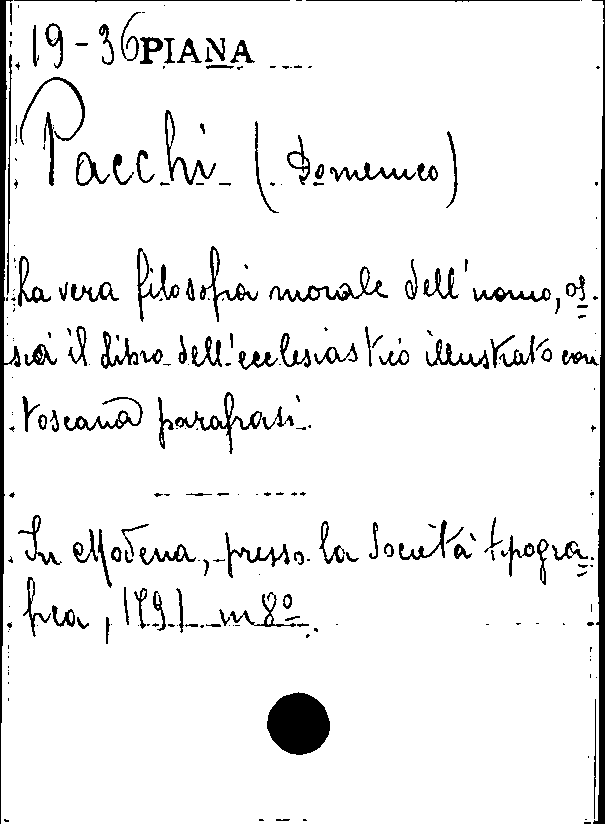 19-36 PIANA
Pacchi (Domenico)
La vera filosofia morale dell'uomo, os=
sia il Libro dell'ecclesiastico illustrato con
toscana parafrasi.
In Modena, presso la Società tipogra=
fica, 1791 in 8º.